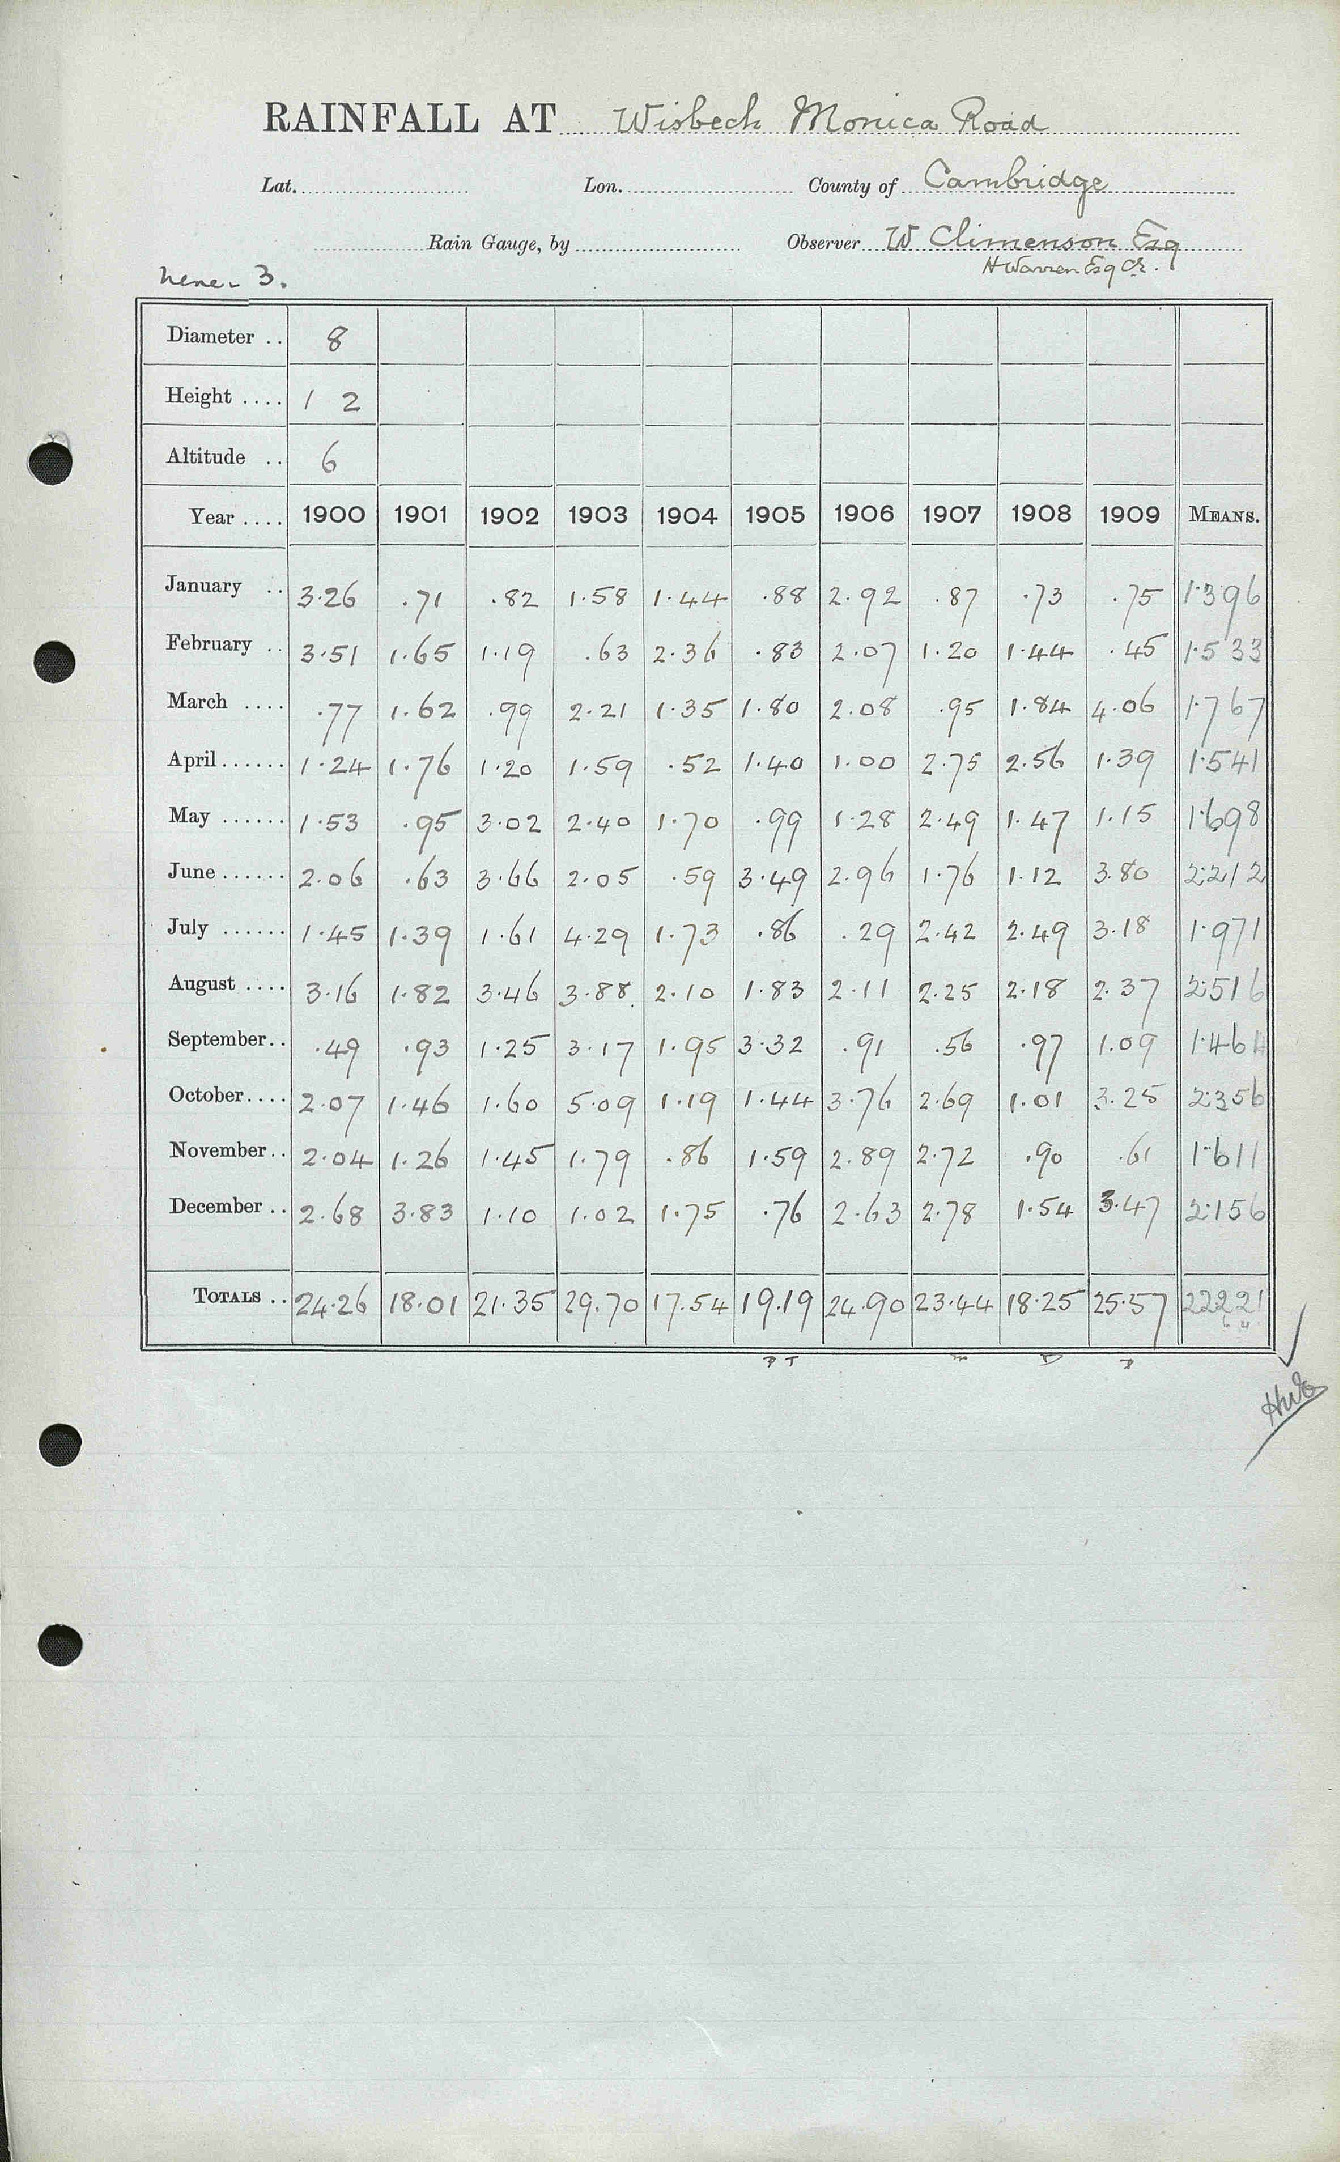 RAINFALL AT Wisbech Monica Road
Lat. Lon. County of Cambridge
Rain Gauge, by Observer W Climenson Esq
H Warren Esq
Nene 3.
Diameter .. 8
Height .... 1 2
Altitude .. 6
Year .... 1900 1901 1902 1903 1904 1905 1906 1907 1908 1909 MEANS.
January .. 3.26 .71 .82 1.58 1.44 .88 2.92 .87 .73 .75 1.396
February .. 3.51 1.65 1.19 .63 2.36 .83 2.07 1.20 1.44 .45 1.533
March .... .77 1.62 .99 2.21 1.35 1.80 2.08 .95 1.84 4.06 1.767
April ...... 1.24 1.76 1.20 1.59 .52 1.40 1.00 2.75 2.56 1.39 1.541
May ...... 1.53 .95 3.02 2.40 1.70 .99 1.28 2.49 1.47 1.15 1.698
June ...... 2.06 .63 3.66 2.05 .59 3.49 2.96 1.76 1.12 3.80 2.212
July ...... 1.45 1.39 1.61 4.29 1.73 .86 .29 2.42 2.49 3.18 1.971
August .... 3.16 1.82 3.46 3.88 2.10 1.83 2.11 2.25 2.18 2.37 2.516
September .. .49 .93 1.25 3.17 1.95 3.32 .91 .56 .97 1.09 1.464
October .... 2.07 1.46 1.60 5.09 1.19 1.44 3.76 2.69 1.01 3.25 2.356
November .. 2.04 1.26 1.45 1.79 .86 1.59 2.89 2.72 .90 .61 1.611
December .. 2.68 3.83 1.10 1.02 1.75 .76 2.63 2.78 1.54 3.47 2.156
TOTALS .. 24.26 18.01 21.35 29.70 17.54 19.19 24.90 23.44 18.25 25.57 22221